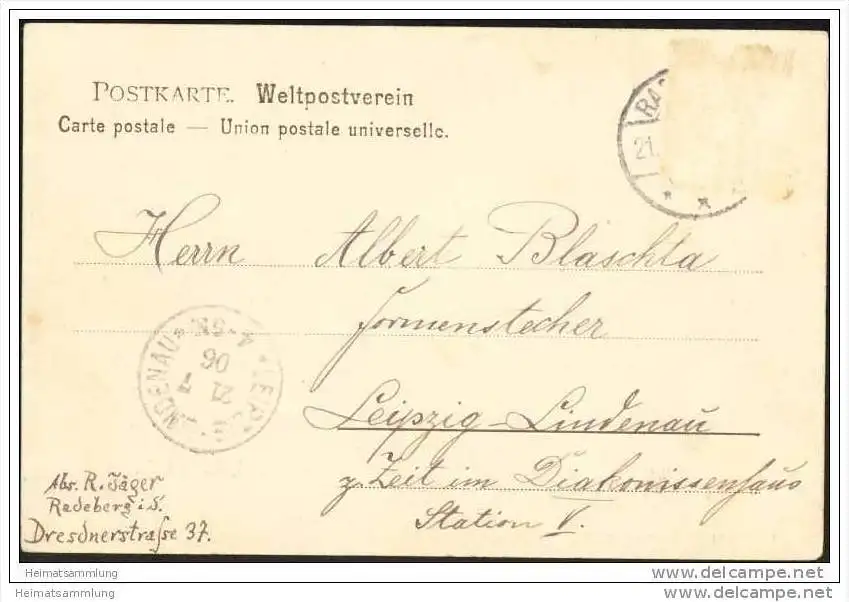 POSTKARTE. Weltpostverein
Carte postale — Union postale universelle.
21.
Herrn Albert Blaschta
Formenstecher
Leipzig-Lindenau
z. Zeit im Diakonissenhaus
Station V.
21 7
06
4-5N
Abs. R. Jäger
Radeberg i. S.
Dresdnerstraſse 37.
Heimatsammlung
Heimatsammlung
www.delcampe.net
www.delcampe.net